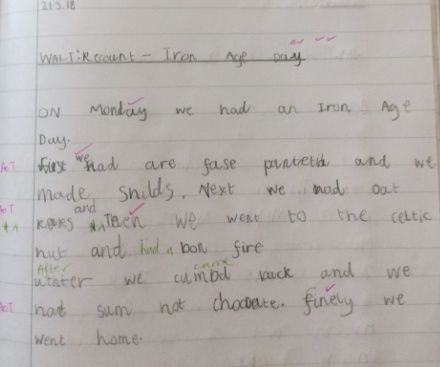 21.3.18
WALT: Recount - Iron Age Day
ON Monday we had an Iron Age
Day.
first we had are fase and we
made shilds. Next we had oat
and Then we went to the celtic
hut and had a bon fire
After we back and we
had sum hot finely we
went home.